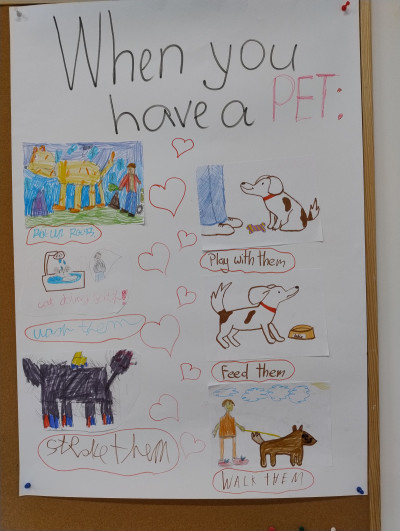 When you
have a PET:
Play with them
wash them
Feed them
stroke them
WALK THEM